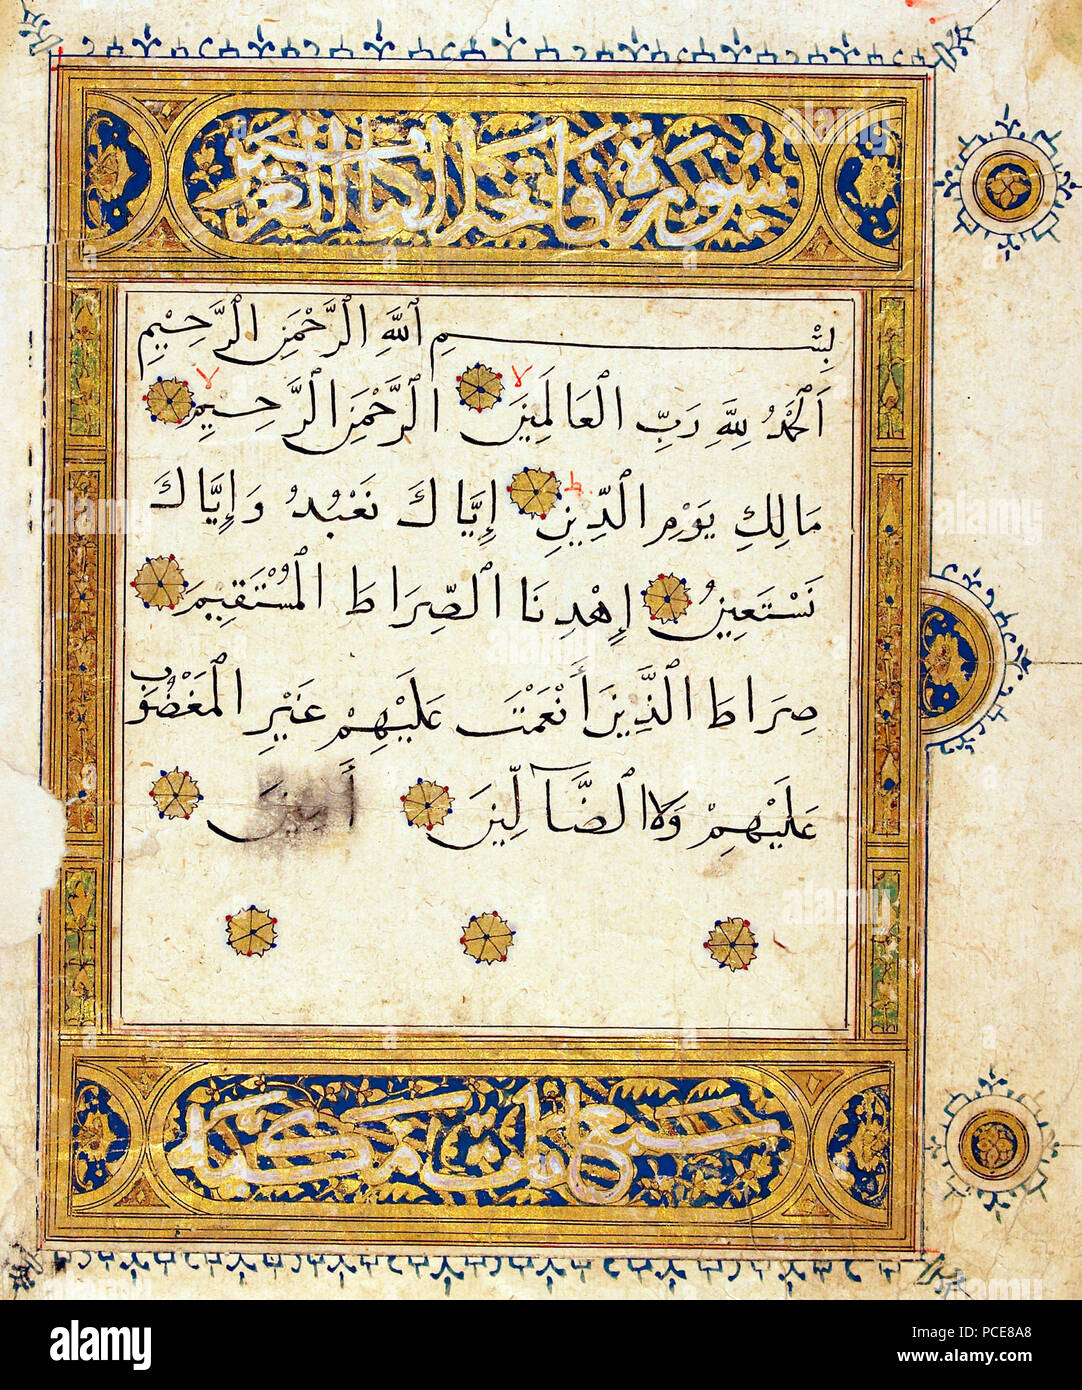 سورة فاتحة الكتاب العزيز
بِسْمِ ٱللَّهِ الرَّحْمَنِ الرَّحِيْمِ
اَلْحَمْدُ لِلَّهِ رَبِّ الْعَالَمِيْنَ لا الرَّحْمَنِ الرَّحِيْمِ لا
مَالِكِ يَوْمِ الدِّيْنِ ط إِيَّاكَ نَعْبُدُ وَإِيَّاكَ
نَسْتَعِيْنُ إِهْدِنَا الصِّرَاطَ الْمُسْتَقِيْمَ
صِرَاطَ الَّذِيْنَ أَنْعَمْتَ عَلَيْهِمْ غَيْرِ الْمَغْضُوْبِ
عَلَيْهِمْ وَلَا الضَّآلِّيْنَ أَمِيْنَ
سبع ايات مكية
alamy
PCE8A8
www.alamy.com